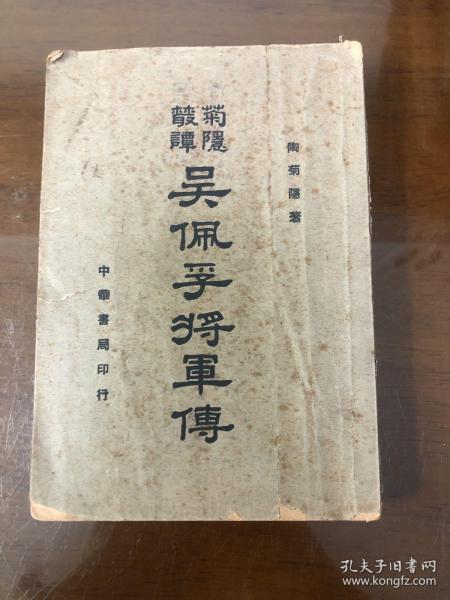 陶菊隱著
菊隱
叢譚
吳佩孚將軍傳
中華書局印行
孔夫子旧书网
www.kongfz.com